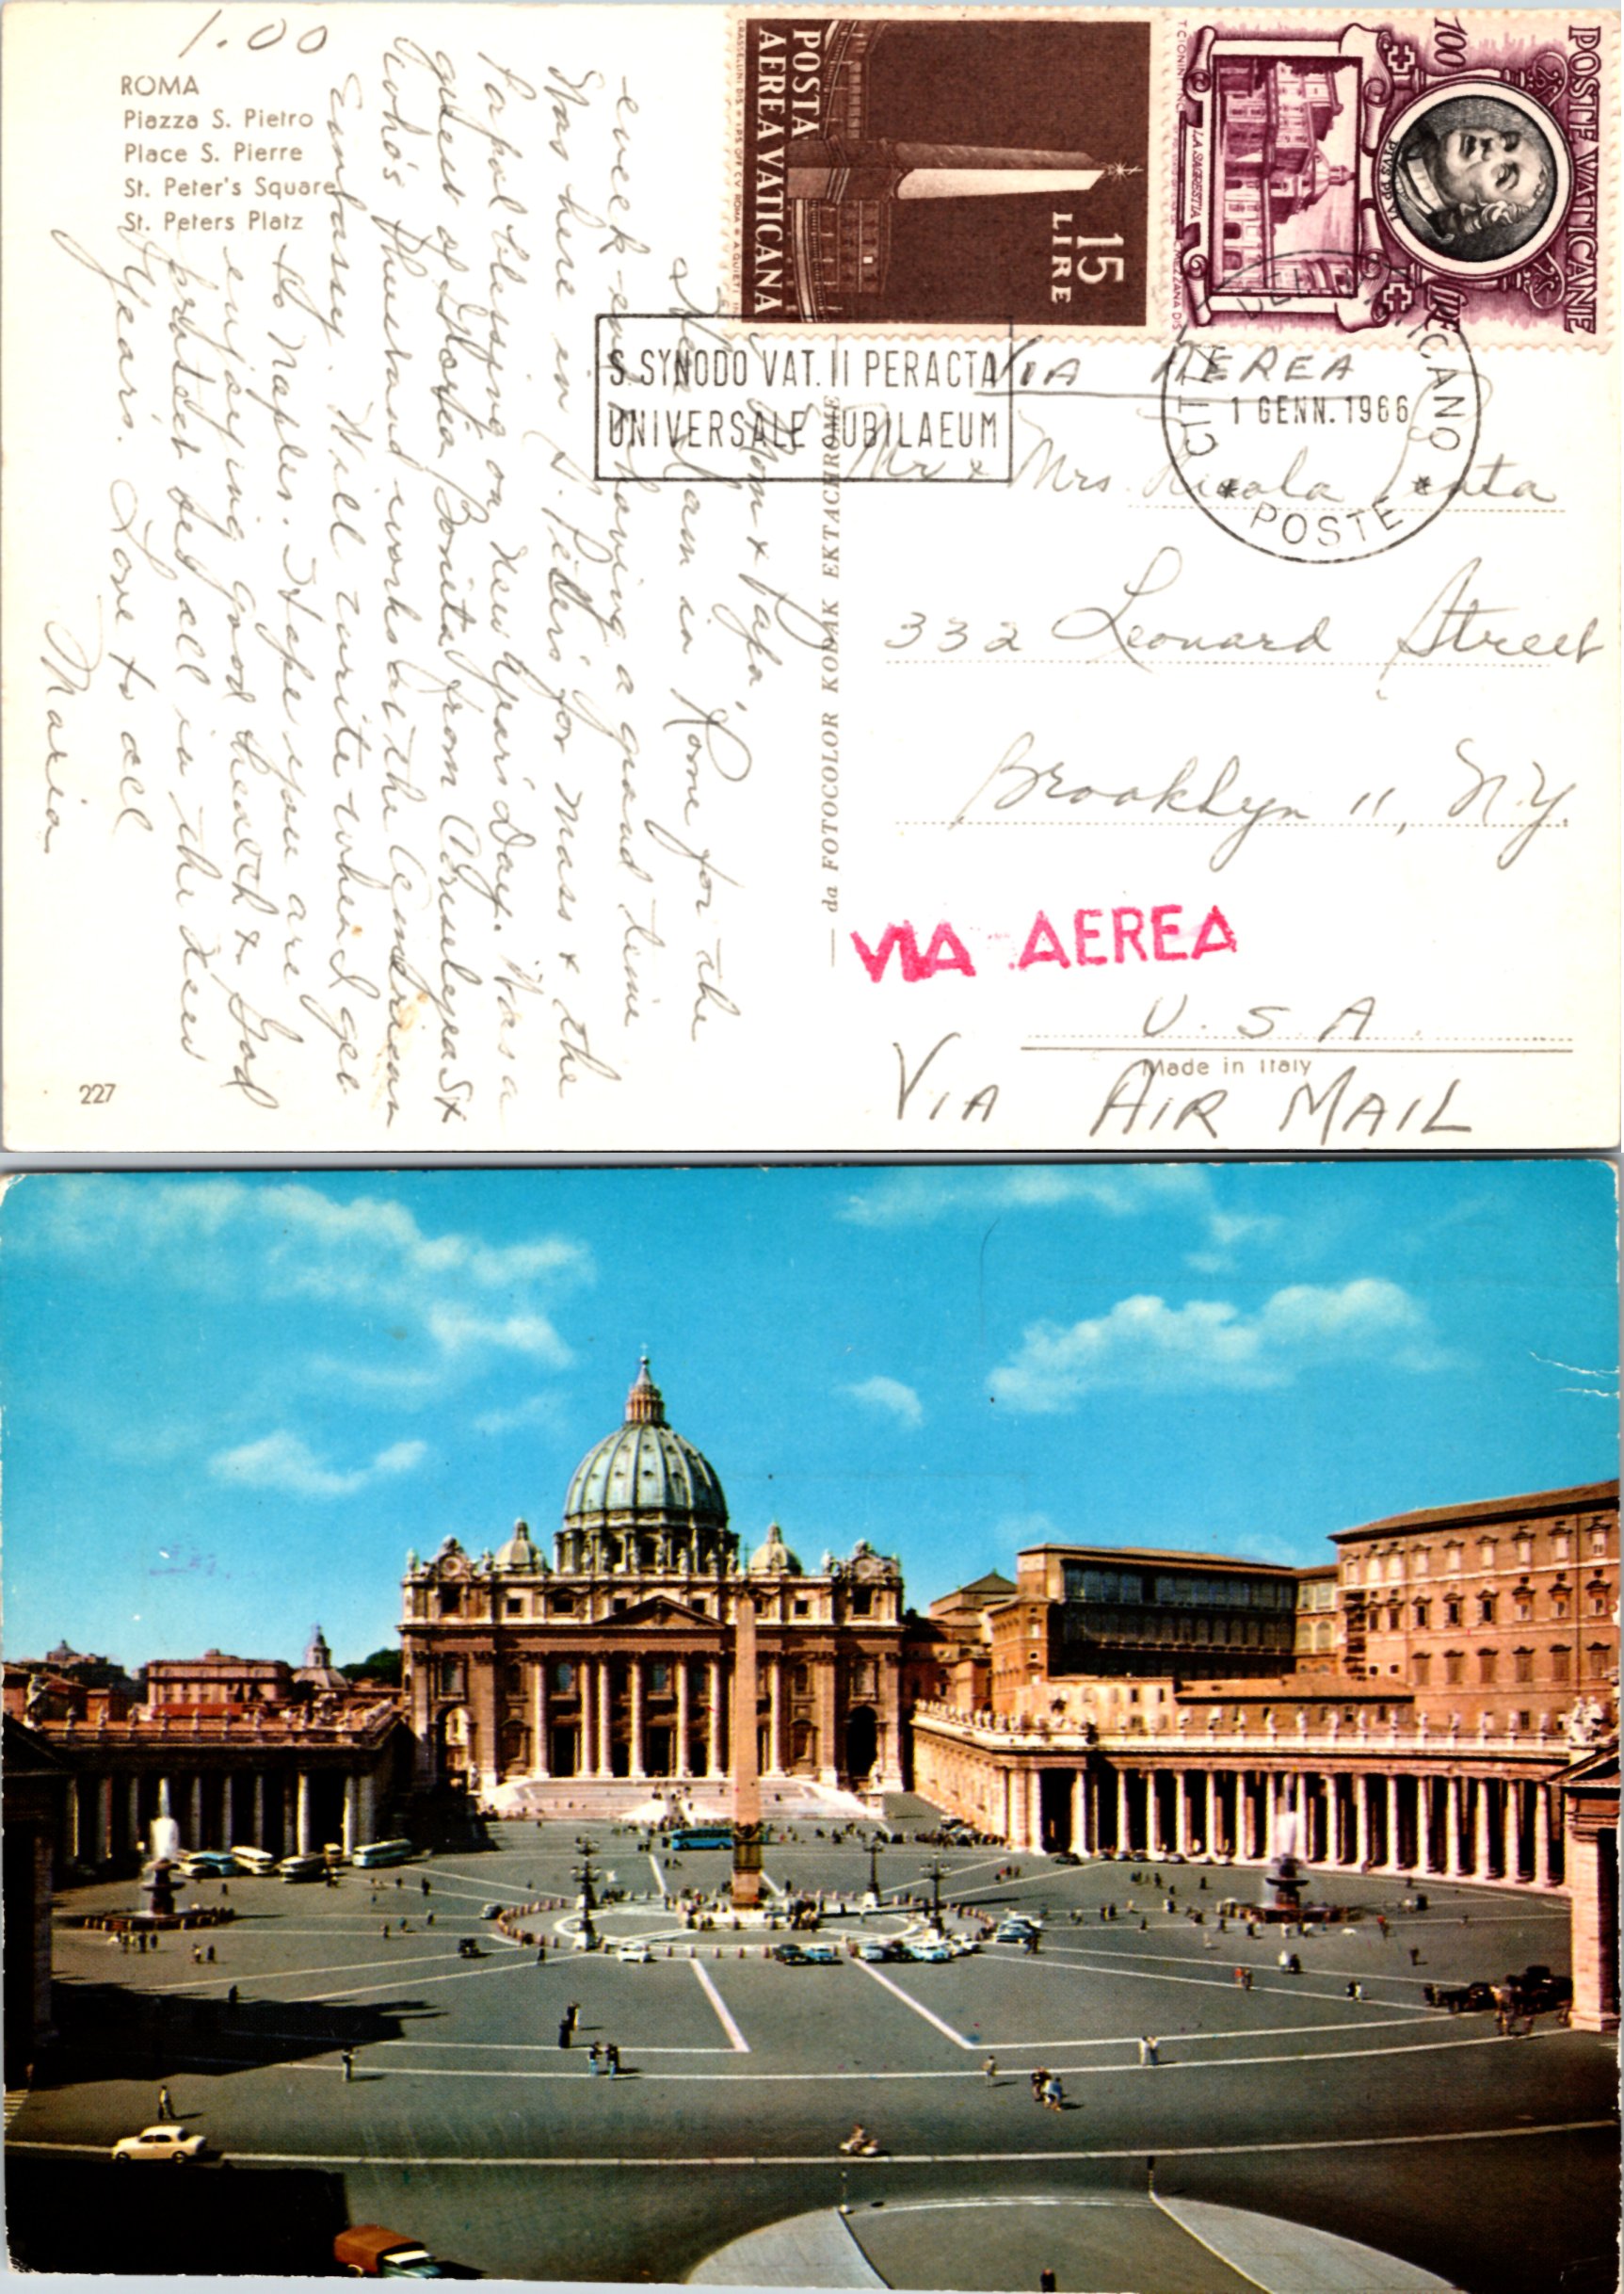 1.00
ROMA
Piazza S. Pietro
Place S. Pierre
St. Peter's Square
St. Peters Platz
POSTA
AEREA VATICANA
15
LIRE
POSTE VATICANE
100
LIRE
PIVS PP VI
LA SAGRESTIA
S. SYNODO VAT. II PERACTA
UNIVERSALE JUBILAEUM
CITTA DEL VATICANO
1 GENN. 1966
* POSTE *
VIA AEREA
Mr & Mrs. Nicola
332 Leonard Street
Brooklyn 11, N.Y.
VIA AEREA
U.S.A.
Made in Italy
VIA AIR MAIL
da FOTOCOLOR KODAK EKTACHROME
Mom & Papa,
I am in Rome for the
week-end having a grand time
Was here in St. Peters for Mass & the
Papal blessing on New Years Day. Was a
guest of Gloria Bonita from &
who's husband works at the American
Embassy. Will write when I get
to Naples. Hope you are
enjoying good health & God
protect
Years. Love to all
Maria
227